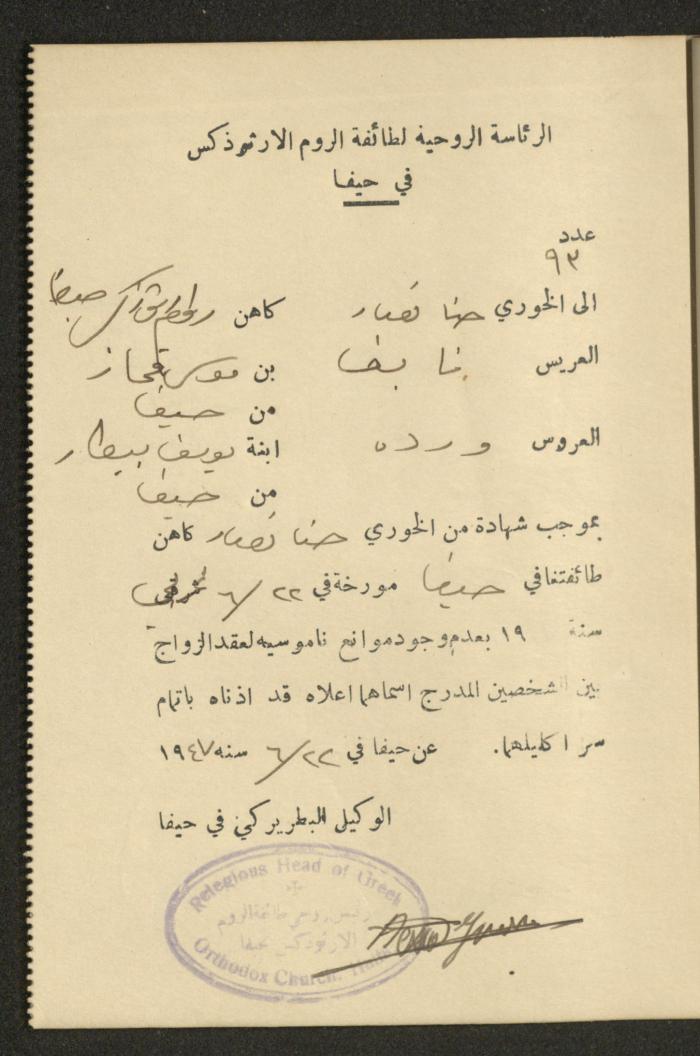 الرئاسة الروحية لطائفة الروم الارثوذكس
في حيفا
عدد
٩٣
الى الخوري حنا نصار كاهن
العريس بن موسى
من حيفا
العروس ورده ابنة يوسف بيطار
من حيفا
بموجب شهادة من الخوري حنا نصار كاهن
طائفتنا في حيفا مورخة في ٢٢/٦
سنة ١٩ بعدم وجود موانع ناموسيه لعقد الزواج
بين الشخصين المدرج اسماهما اعلاه قد اذناه باتمام
سر اكليلهما. عن حيفا في ٢٢/٦ سنه ١٩٤٧
الوكيل البطريركي في حيفا
Relegious Head of Greek
رئيس روحي طائفة الروم
الارثوذكس بحيفا
Orthodox Church, Haifa